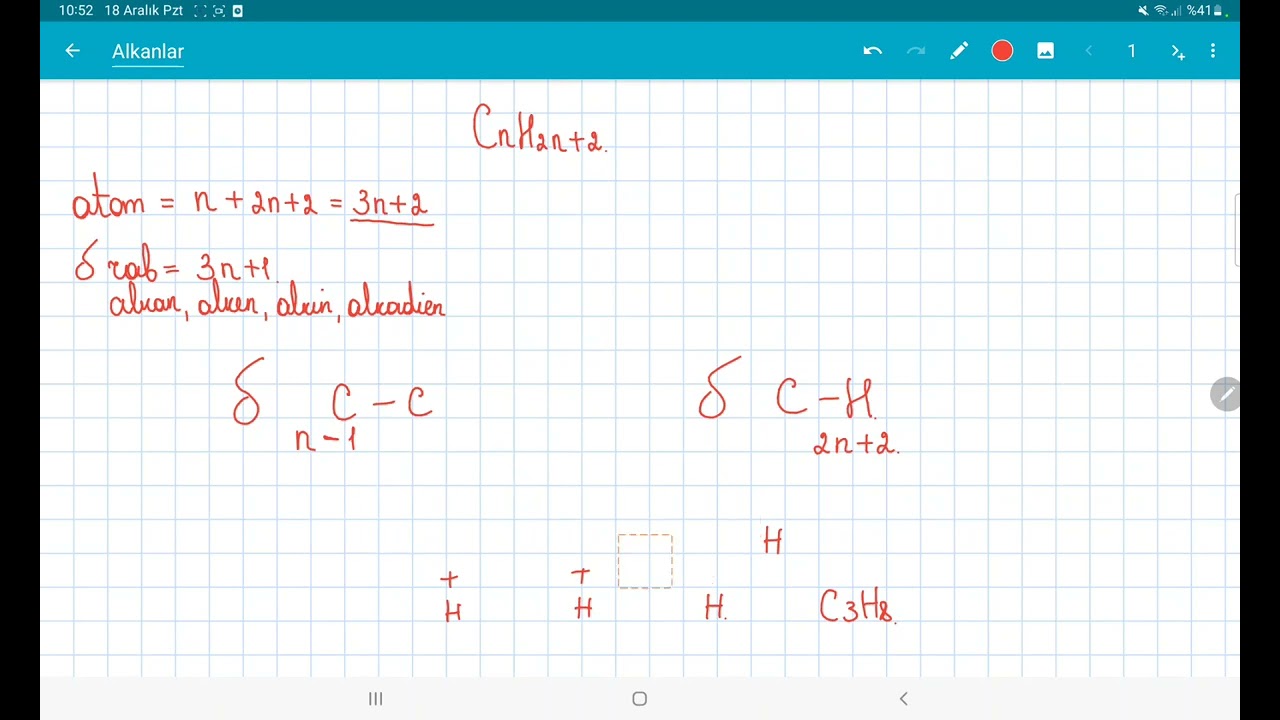 10:52 18 Aralık Pzt %41
Alkanlar 1
CnH2n+2.
atom = n + 2n+2 = 3n+2
δ rab = 3n+1
alkan, alken, alkin, alkadien
δ C - C δ C - H
n - 1 2n+2.
H
+ +
H H H. C3H8.